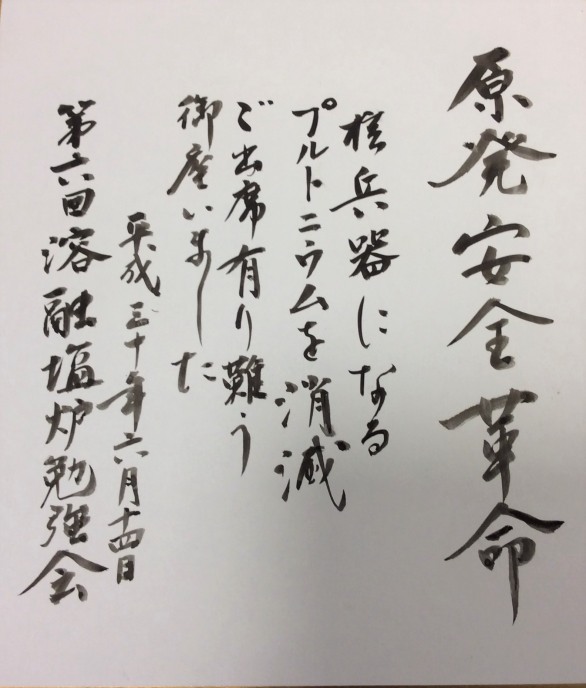 原発安全革命
核兵器になる
プルトニウムを消滅
ご出席有り難う
御座いました
平成三十年六月十四日
第六回溶融塩炉勉強会